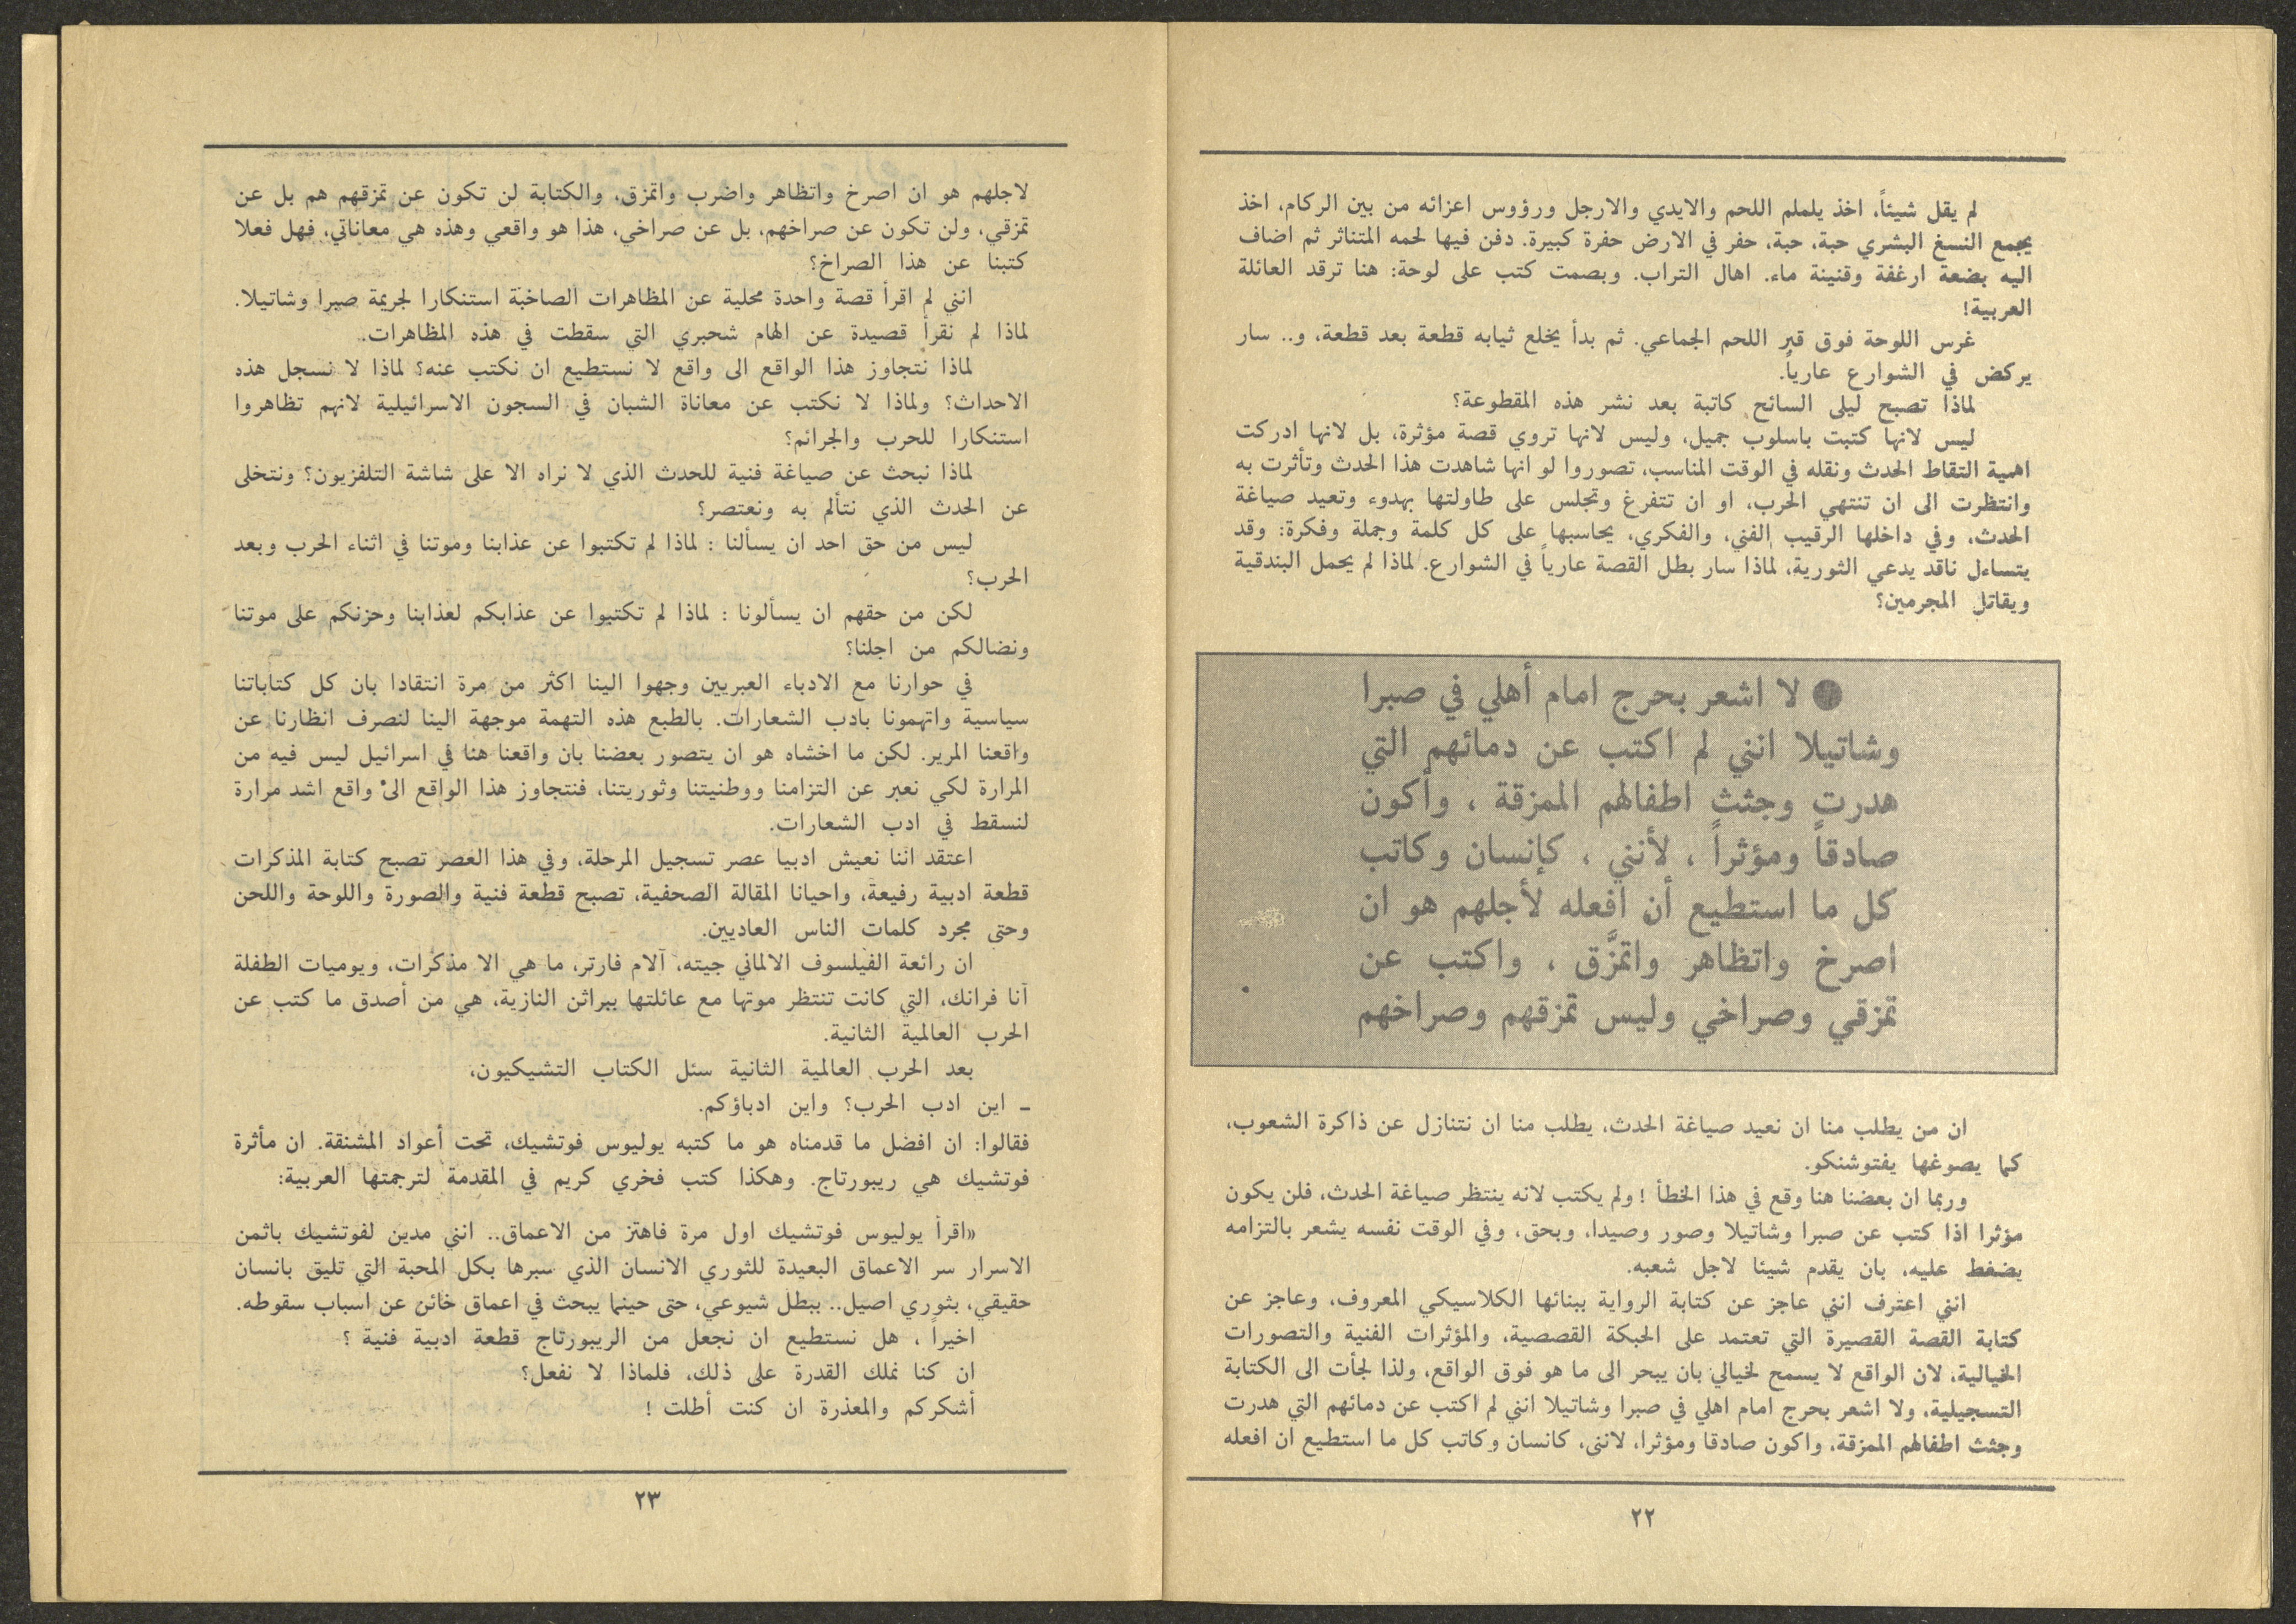 لم يقل شيئاً، اخذ يلملم اللحم والايدي والارجل ورؤوس اعزائه من بين الركام، اخذ
يجمع النسغ البشري حبة، حبة، حفر في الارض حفرة كبيرة. دفن فيها لحمه المتناثر ثم اضاف
اليه بضعة ارغفة وقنينة ماء. اهال التراب. وبصمت كتب على لوحة: هنا ترقد العائلة
العربية!
غرس اللوحة فوق قبر اللحم الجماعي. ثم بدأ يخلع ثيابه قطعة بعد قطعة، و.. سار
يركض في الشوارع عارياً.
لماذا تصبح ليلى السائح كاتبة بعد نشر هذه المقطوعة؟
ليس لانها كتبت باسلوب جميل، وليس لانها تروي قصة مؤثرة، بل لانها ادركت
اهمية التقاط الحدث ونقله في الوقت المناسب، تصوروا لو انها شاهدت هذا الحدث وتأثرت به
وانتظرت الى ان تنتهي الحرب، او ان تتفرغ وتجلس على طاولتها بهدوء وتعيد صياغة
الحدث، وفي داخلها الرقيب الفني، والفكري، يحاسبها على كل كلمة وجملة وفكرة: وقد
يتساءل ناقد يدعي الثورية، لماذا سار بطل القصة عارياً في الشوارع. لماذا لم يحمل البندقية
ويقاتل المجرمين؟
● لا اشعر بحرج امام أهلي في صبرا
وشاتيلا انني لم اكتب عن دمائهم التي
هدرت وجثث اطفالهم الممزقة ، وأكون
صادقاً ومؤثراً ، لأنني ، كإنسان وكاتب
كل ما استطيع أن افعله لأجلهم هو ان
اصرخ واتظاهر واتمزَّق ، واكتب عن
تمزقي وصراخي وليس تمزقهم وصراخهم
ان من يطلب منا ان نعيد صياغة الحدث، يطلب منا ان نتنازل عن ذاكرة الشعوب،
كما يصوغها يفتوشنكو.
وربما ان بعضنا هنا وقع في هذا الخطأ ! ولم يكتب لانه ينتظر صياغة الحدث، فلن يكون
مؤثرا اذا كتب عن صبرا وشاتيلا وصور وصيدا، وبحق، وفي الوقت نفسه يشعر بالتزامه
يضغط عليه، بان يقدم شيئا لاجل شعبه.
انني اعترف انني عاجز عن كتابة الرواية ببنائها الكلاسيكي المعروف، وعاجز عن
كتابة القصة القصيرة التي تعتمد على الحبكة القصصية، والمؤثرات الفنية والتصورات
الخيالية، لان الواقع لا يسمح لخيالي بان يبحر الى ما هو فوق الواقع، ولذا لجأت الى الكتابة
التسجيلية، ولا اشعر بحرج امام اهلي في صبرا وشاتيلا انني لم اكتب عن دمائهم التي هدرت
وجثث اطفالهم الممزقة، واكون صادقا ومؤثرا، لانني، كانسان وكاتب كل ما استطيع ان افعله
٢٢
لاجلهم هو ان اصرخ واتظاهر واضرب واتمزق، والكتابة لن تكون عن تمزقهم هم بل عن
تمزقي، ولن تكون عن صراخهم، بل عن صراخي، هذا هو واقعي وهذه هي معاناتي، فهل فعلا
كتبنا عن هذا الصراخ؟
انني لم اقرأ قصة واحدة محلية عن المظاهرات الصاخبة استنكارا لجريمة صبرا وشاتيلا.
لماذا لم نقرأ قصيدة عن الهام شحبري التي سقطت في هذه المظاهرات.
لماذا نتجاوز هذا الواقع الى واقع لا نستطيع ان نكتب عنه؟ لماذا لا نسجل هذه
الاحداث؟ ولماذا لا نكتب عن معاناة الشبان في السجون الاسرائيلية لانهم تظاهروا
استنكارا للحرب والجرائم؟
لماذا نبحث عن صياغة فنية للحدث الذي لا نراه الا على شاشة التلفزيون؟ ونتخلى
عن الحدث الذي نتألم به ونعتصر؟
ليس من حق احد ان يسألنا : لماذا لم تكتبوا عن عذابنا وموتنا في اثناء الحرب وبعد
الحرب؟
لكن من حقهم ان يسألونا : لماذا لم تكتبوا عن عذابكم لعذابنا وحزنكم على موتنا
ونضالكم من اجلنا؟
في حوارنا مع الادباء العبريين وجهوا الينا اكثر من مرة انتقادا بان كل كتاباتنا
سياسية واتهمونا بادب الشعارات. بالطبع هذه التهمة موجهة الينا لنصرف انظارنا عن
واقعنا المرير. لكن ما اخشاه هو ان يتصور بعضنا بان واقعنا هنا في اسرائيل ليس فيه من
المرارة لكي نعبر عن التزامنا ووطنيتنا وثوريتنا، فنتجاوز هذا الواقع الى واقع اشد مرارة
لنسقط في ادب الشعارات.
اعتقد اننا نعيش ادبيا عصر تسجيل المرحلة، وفي هذا العصر تصبح كتابة المذكرات
قطعة ادبية رفيعة، واحيانا المقالة الصحفية، تصبح قطعة فنية والصورة واللوحة واللحن
وحتى مجرد كلمات الناس العاديين.
ان رائعة الفيلسوف الالماني جيته، آلام فارتر، ما هي الا مذكرات، ويوميات الطفلة
آنا فرانك، التي كانت تنتظر موتها مع عائلتها ببراثن النازية، هي من أصدق ما كتب عن
الحرب العالمية الثانية.
بعد الحرب العالمية الثانية سئل الكتاب التشيكيون،
ـ اين ادب الحرب؟ واين ادباؤكم.
فقالوا: ان افضل ما قدمناه هو ما كتبه يوليوس فوتشيك، تحت أعواد المشنقة. ان مأثرة
فوتشيك هي ريبورتاج. وهكذا كتب فخري كريم في المقدمة لترجمتها العربية:
«اقرأ يوليوس فوتشيك اول مرة فاهتز من الاعماق.. انني مدين لفوتشيك باثمن
الاسرار سر الاعماق البعيدة للثوري الانسان الذي سبرها بكل المحبة التي تليق بانسان
حقيقي، بثوري اصيل.. ببطل شيوعي، حتى حينما يبحث في اعماق خائن عن اسباب سقوطه.
اخيراً ، هل نستطيع ان نجعل من الريبورتاج قطعة ادبية فنية ؟
ان كنا نملك القدرة على ذلك، فلماذا لا نفعل؟
أشكركم والمعذرة ان كنت أطلت !
٢٣